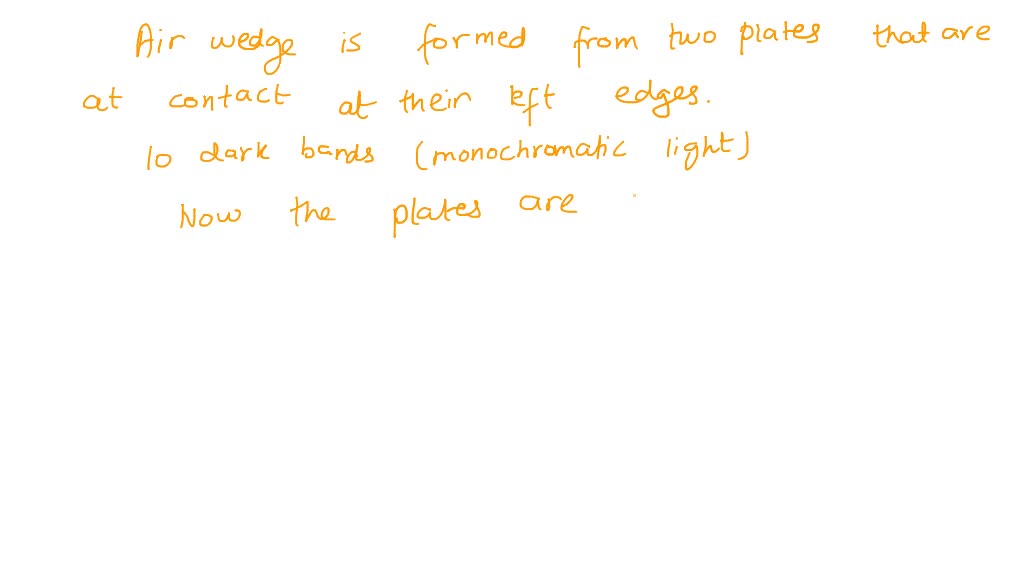 Air wedge is formed from two plates that are
at contact at their left edges.
10 dark bands (monochromatic light)
Now the plates are